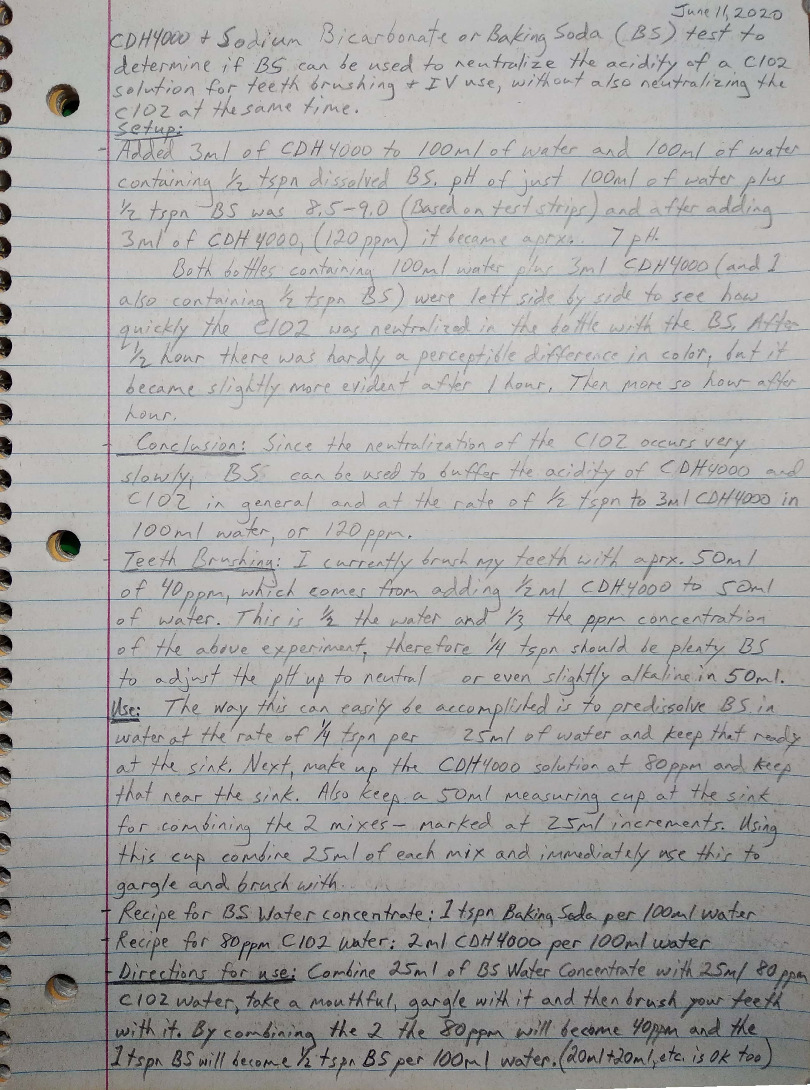 June 11, 2020
CDH4000 + Sodium Bicarbonate or Baking Soda (BS) test to
determine if BS can be used to neutralize the acidity of a ClO2
solution for teeth brushing + IV use, without also neutralizing the
ClO2 at the same time.
Setup:
- Added 3ml of CDH4000 to 100ml of water and 100ml of water
containing 1/2 tspn dissolved BS. pH of just 100ml of water plus
1/2 tspn BS was 8.5-9.0 (Based on test strips) and after adding
3ml of CDH4000, (120ppm) it became aprx. 7 pH.
Both bottles containing 100ml water plus 3ml CDH4000 (and 1
also containing 1/2 tspn BS) were left side by side to see how
quickly the ClO2 was neutralized in the bottle with the BS. After
1/2 hour there was hardly a perceptible difference in color, but it
became slightly more evident after 1 hour. Then more so hour after
hour.
- Conclusion: Since the neutralization of the ClO2 occurs very
slowly, BS can be used to buffer the acidity of CDH4000 and
ClO2 in general and at the rate of 1/2 tspn to 3ml CDH4000 in
100ml water, or 120ppm.
Teeth Brushing: I currently brush my teeth with aprx. 50ml
of 40ppm, which comes from adding 1/2ml CDH4000 to 50ml
of water. This is 1/2 the water and 1/3 the ppm concentration
of the above experiment, therefore 1/4 tspn should be plenty BS
to adjust the pH up to neutral or even slightly alkaline in 50ml.
Use: The way this can easily be accomplished is to predissolve BS in
water at the rate of 1/4 tspn per 25ml of water and keep that ready
at the sink. Next, make up the CDH4000 solution at 80ppm and keep
that near the sink. Also keep a 50ml measuring cup at the sink
for combining the 2 mixes - marked at 25ml increments. Using
this cup combine 25ml of each mix and immediately use this to
gargle and brush with.
- Recipe for BS Water concentrate: 1 tspn Baking Soda per 100ml water
- Recipe for 80ppm ClO2 water: 2ml CDH4000 per 100ml water
- Directions for use: Combine 25ml of BS Water Concentrate with 25ml 80ppm
ClO2 water, take a mouthful, gargle with it and then brush your teeth
with it. By combining the 2 the 80ppm will become 40ppm and the
1 tspn BS will become 1/2 tspn BS per 100ml water. (20ml+20ml, etc. is OK too)